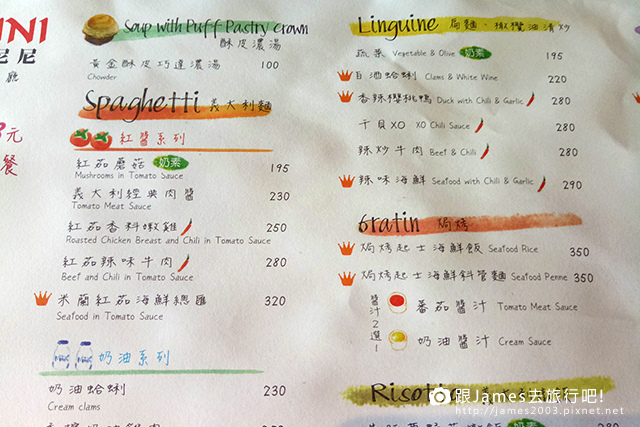 INI
尼尼
廳
元
餐
Soup with Puff Pastry crown
酥皮濃湯
黃金酥皮巧達濃湯 100
Chowder
Spaghetti 義大利麵
紅醬系列
紅茄蘑菇 奶素 195
Mushrooms in Tomato Sauce
義大利經典肉醬 230
Tomato Meat Sauce
紅茄香料嫩雞 250
Roasted Chicken Breast and Chili in Tomato Sauce
紅茄辣味牛肉 280
Beef and Chili in Tomato Sauce
米蘭紅茄海鮮總匯 320
Seafood in Tomato Sauce
奶油系列
奶油蛤蜊 230
Cream clams
Linguine 扁麵、橄欖油清炒
蔬菜 Vegetable & Olive 奶素 195
白酒蛤蜊 Clams & White Wine 220
香辣櫻桃鴨 Duck with Chili & Garlic 280
干貝XO XO Chili Sauce 280
辣炒牛肉 Beef & Chili 280
辣味海鮮 Seafood with Chili & Garlic 290
Gratin 焗烤
焗烤起士海鮮飯 Seafood Rice 350
焗烤起士海鮮斜管麵 Seafood Penne 350
醬汁2選1
蕃茄醬汁 Tomato Meat Sauce
奶油醬汁 Cream Sauce
Risotto
跟James去旅行吧!
http://james2003.pixnet.net